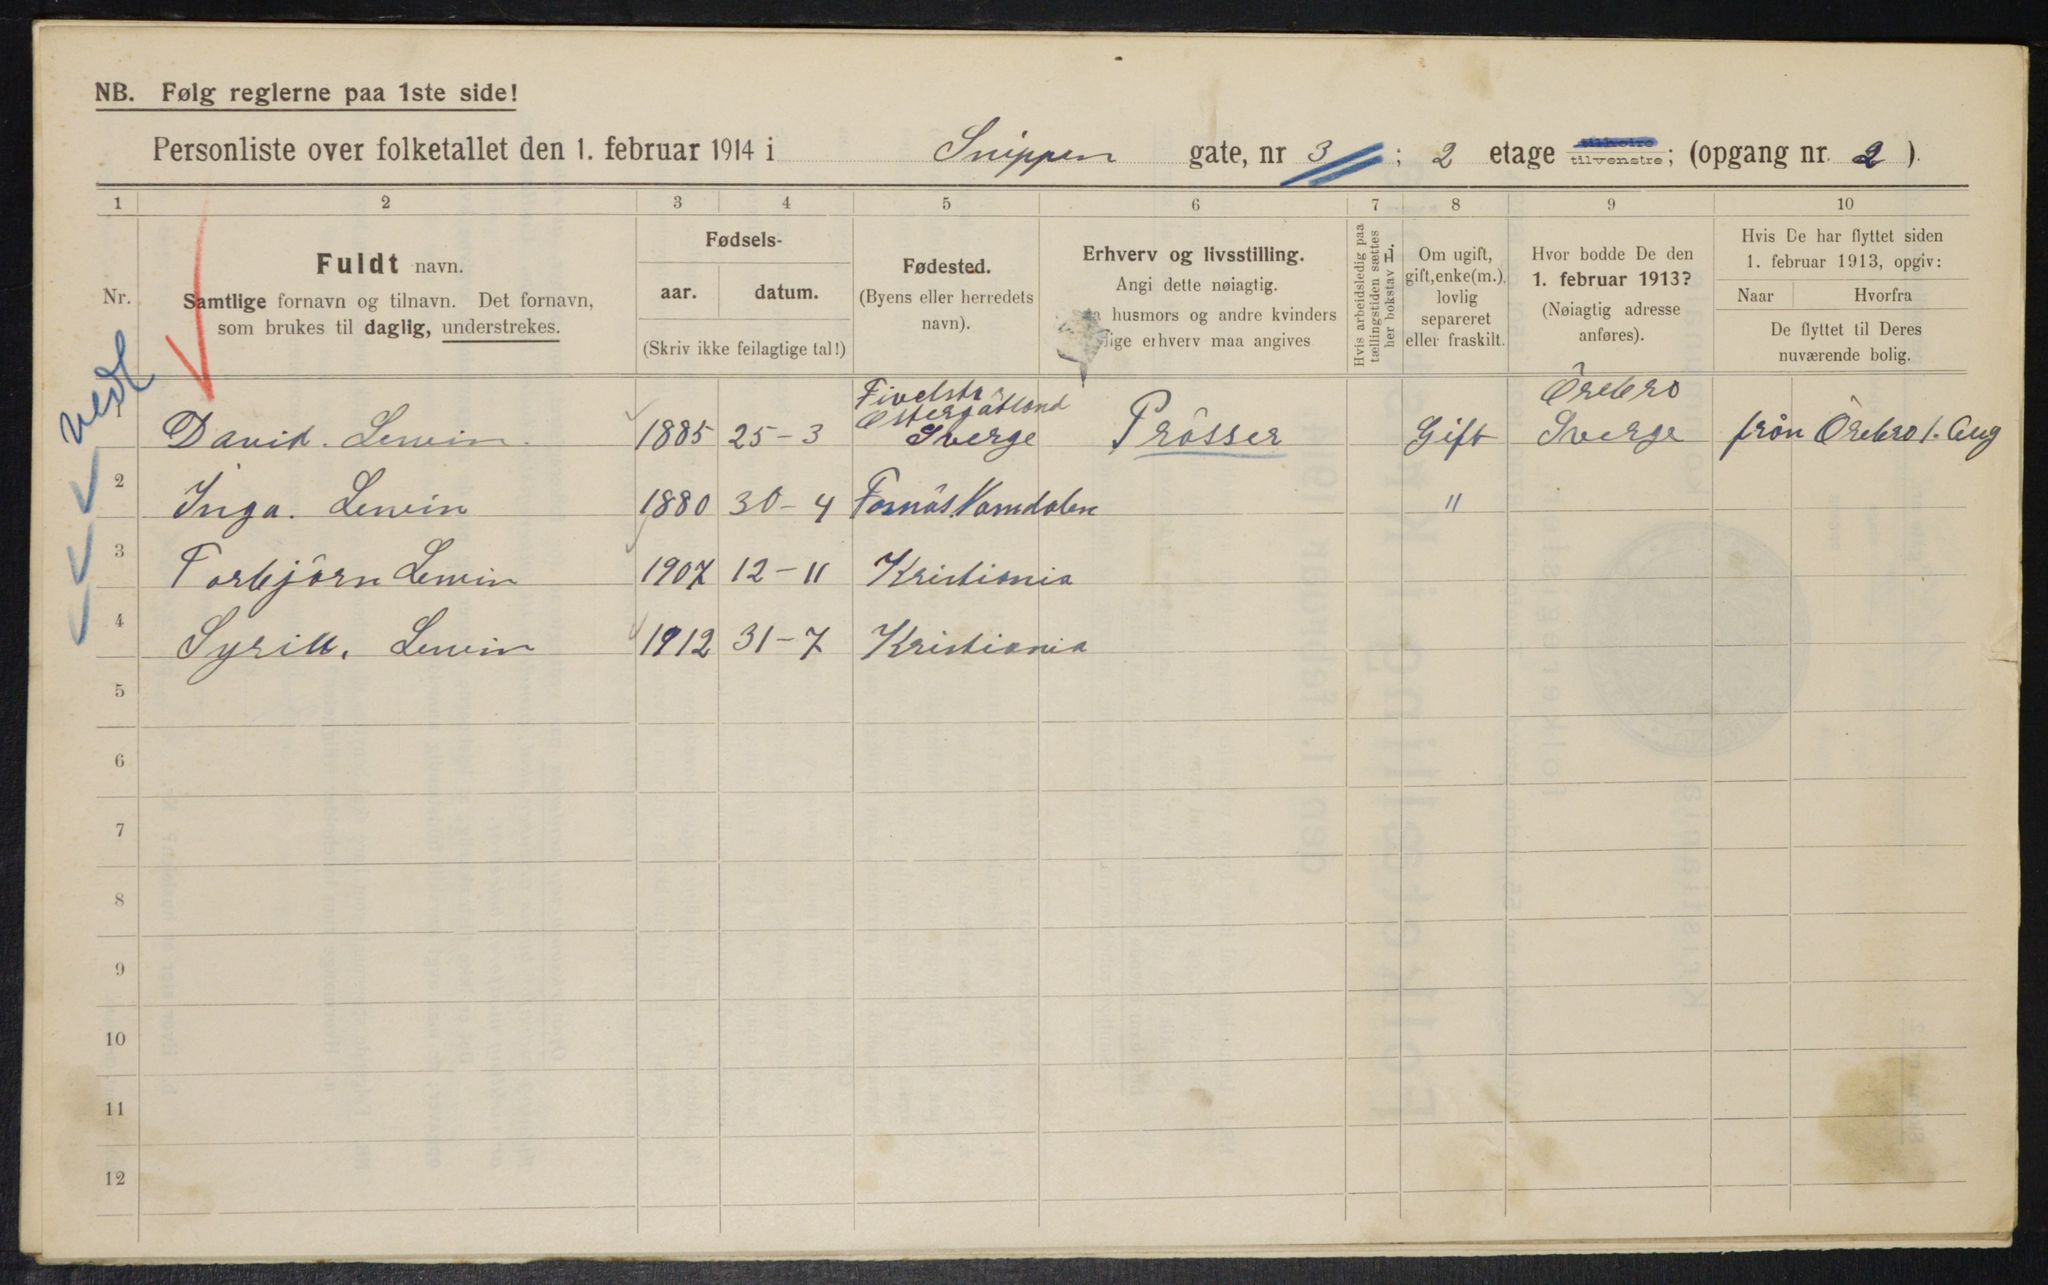 NB. Følg reglerne paa 1ste side!
Personliste over folketallet den 1. februar 1914 i Snippen gate, nr 3 ; 2 etage tilvenstre; (opgang nr. 2 ).
1 2 3 4 5 6 7 8 9 10
Nr.
Fuldt navn.
Samtlige fornavn og tilnavn. Det fornavn,
som brukes til daglig, understrekes.
Fødsels-
aar. datum.
(Skriv ikke feilagtige tal!)
Fødested.
(Byens eller herredets
navn).
Erhverv og livsstilling.
Angi dette nøiagtig.
husmors og andre kvinders
erhverv maa angives
Hvis arbeidsledig paa
tællingstiden sættes
her bokstav L.
Om ugift,
gift, enke(m.),
lovlig
separeret
eller fraskilt.
Hvor bodde De den
1. februar 1913?
(Nøiagtig adresse
anføres).
Hvis De har flyttet siden
1. februar 1913, opgiv:
Naar Hvorfra
De flyttet til Deres
nuværende bolig.
David. Lewin. 1885 25-3 Östergötland Sverge Prösser Gift Örebro Sverge från Örebro 1. Aug
2 Inga. Lewin 1880 30-4 Fosnäs Namdalen "
3 Torbjörn Lewin 1907 12-11 Kristiania
4 Syrill. Lewin 1912 31-7 Kristiania
5
6
7
8
9
10
11
12